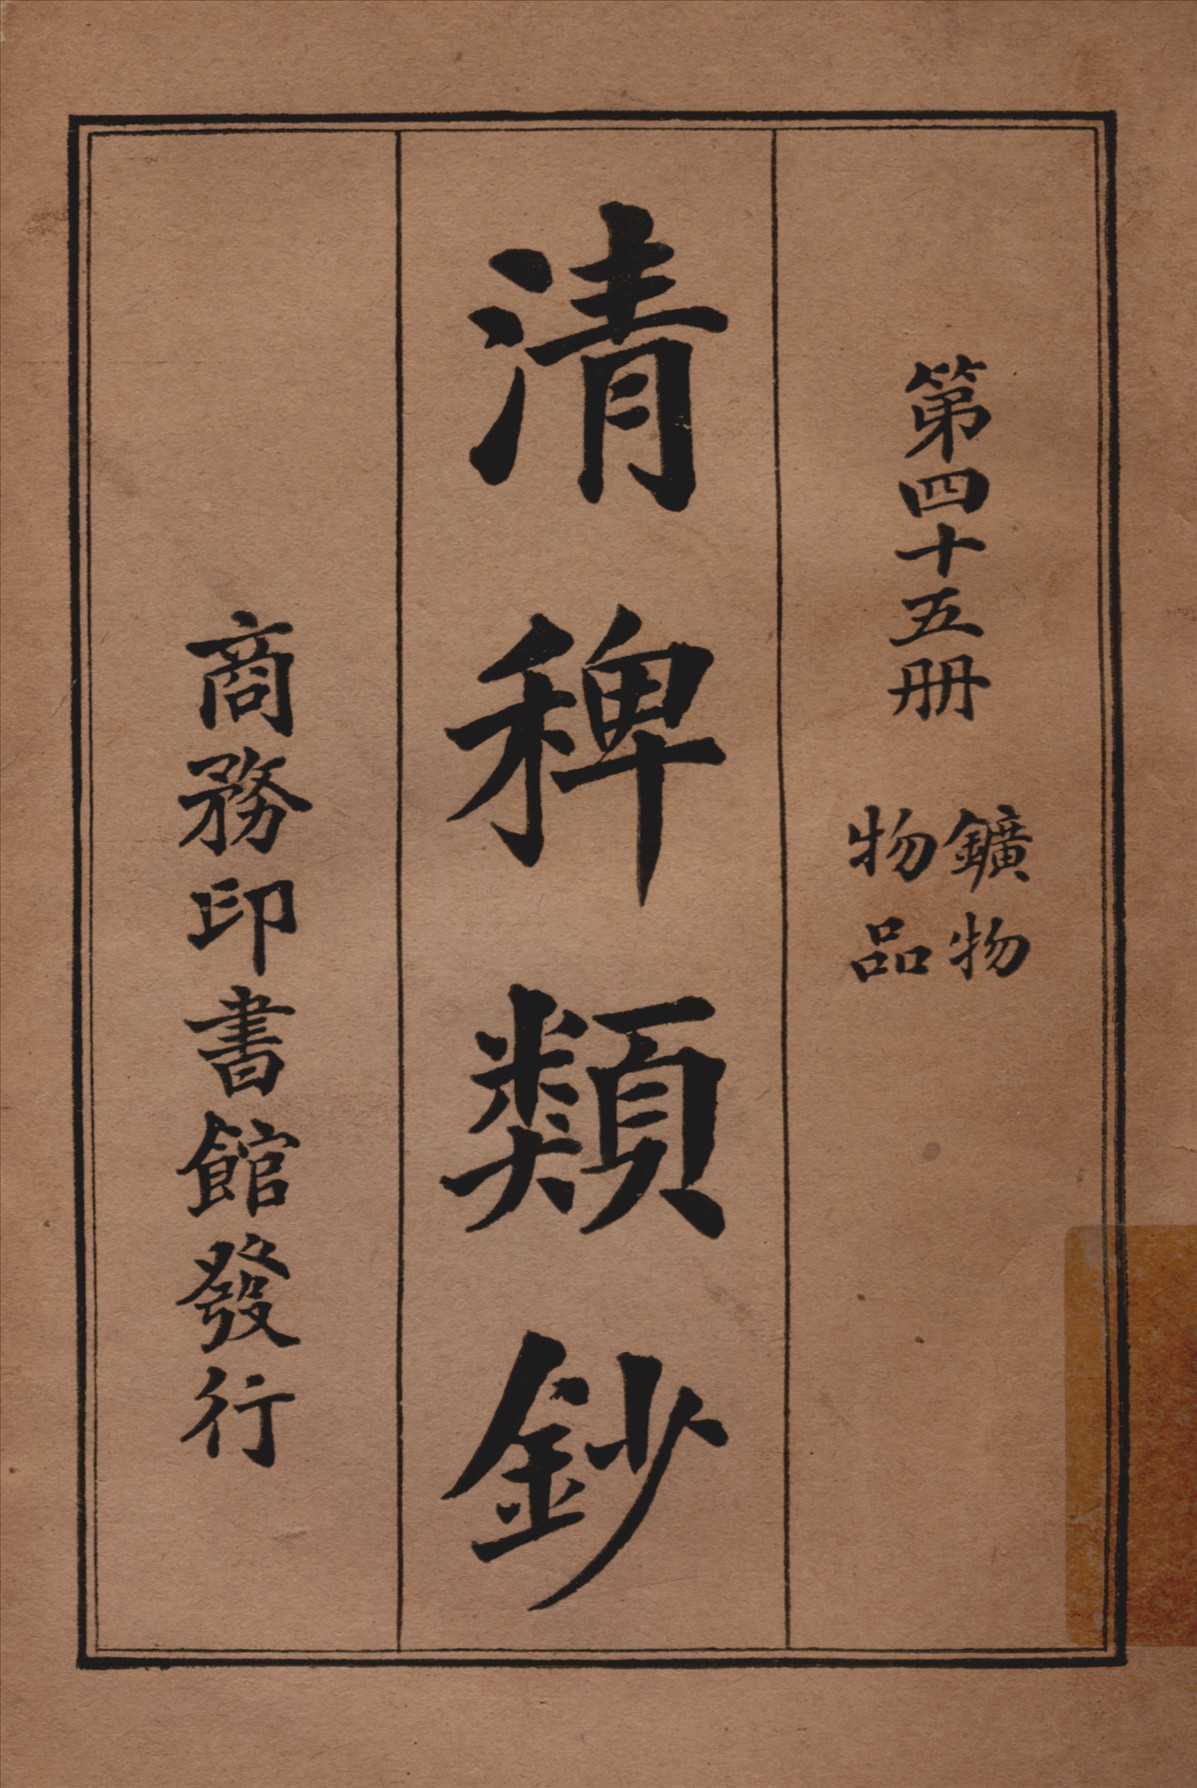 第四十五册
鑛物
物品
清稗類鈔
商務印書館發行